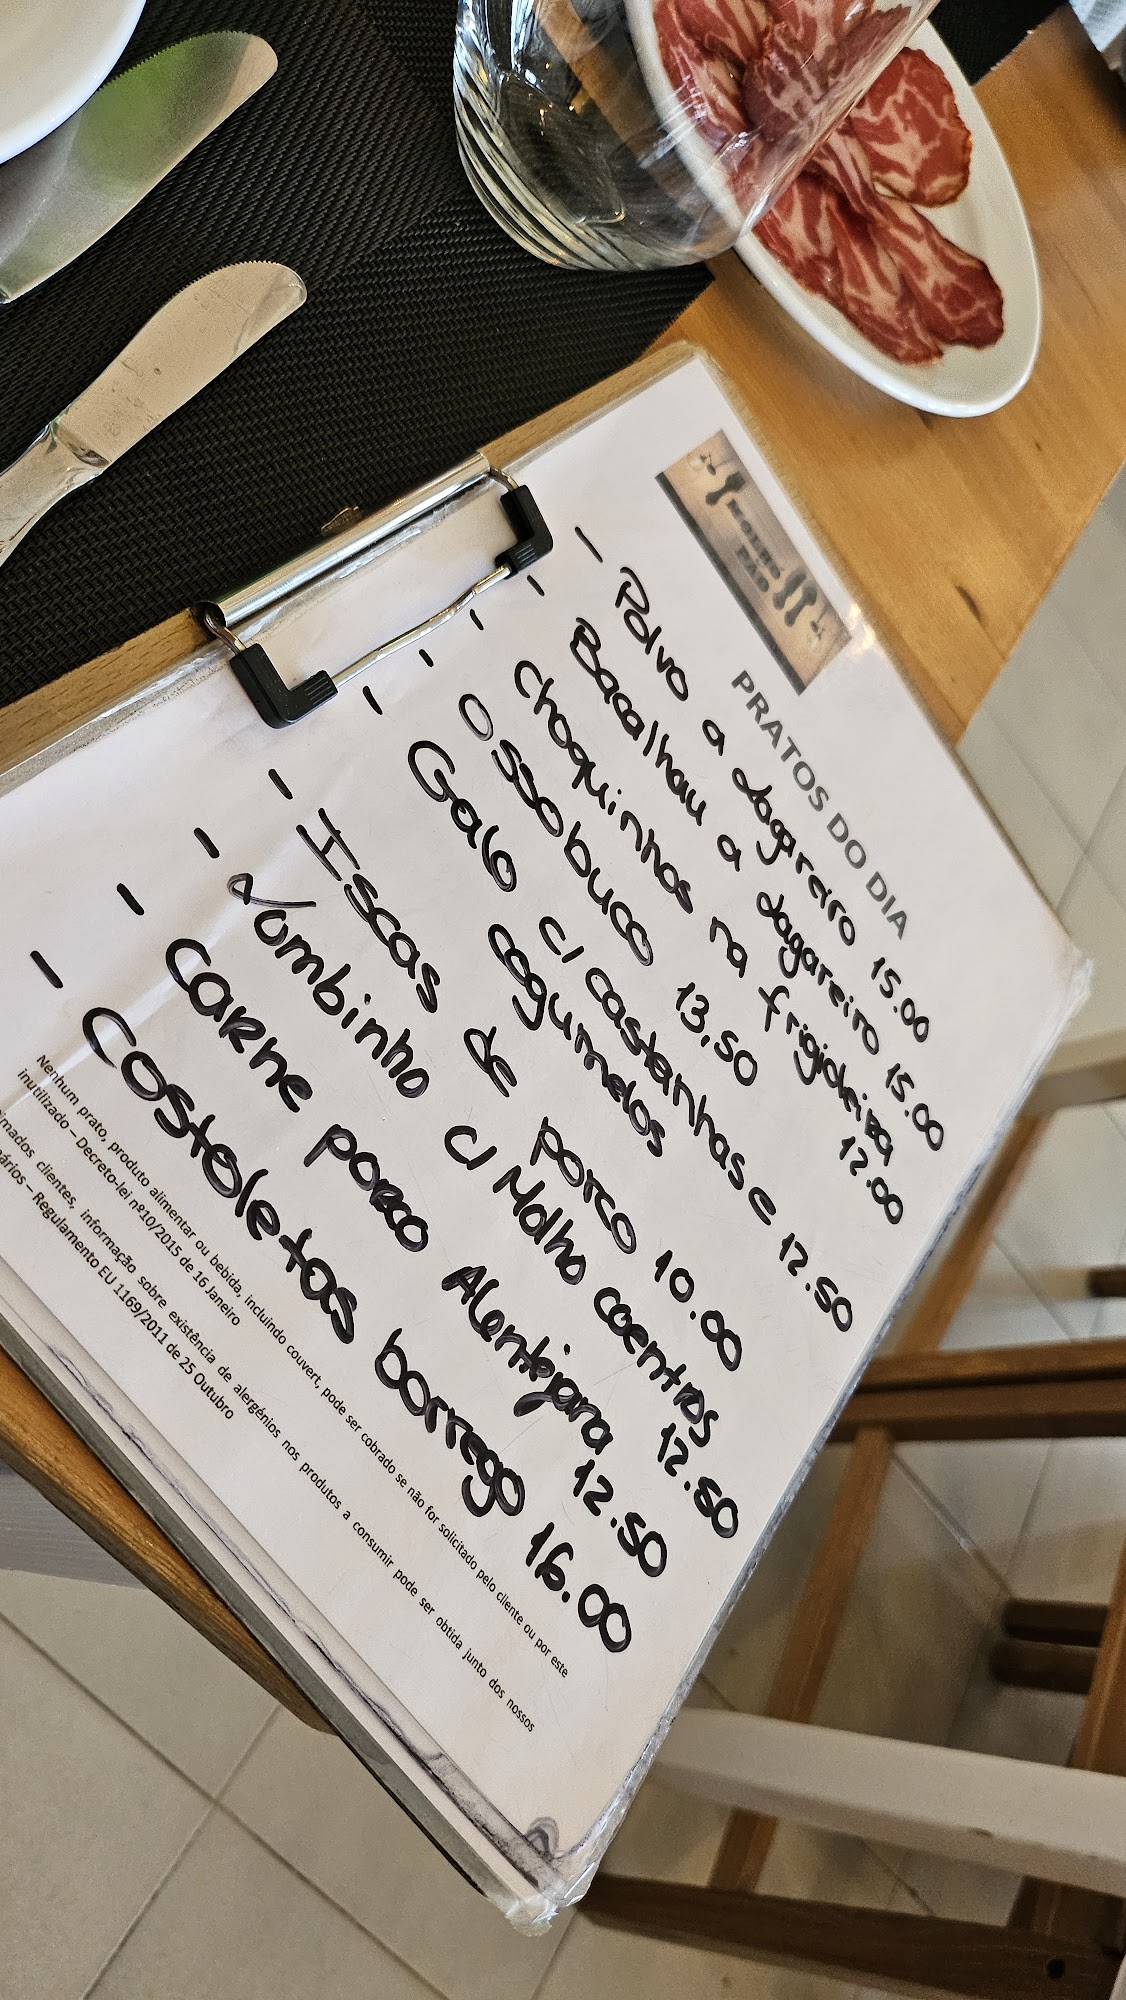 PRATOS DO DIA
- Polvo a Lagareiro 15.00
- Bacalhau a Lagareiro 15.00
- Choquinhos na frigideira 12.00
- Ossobuco 13,50
- Galo c/ castanhas e 12.50
cogumelos
- Iscas de porco 10.00
- Lombinho c/ Molho coentros 12.50
- Carne porco Alentejana 12.50
- Costoletas borrego 16.00
Nenhum prato, produto alimentar ou bebida, incluindo couvert, pode ser cobrado se não for solicitado pelo cliente ou por este
inutilizado – Decreto-lei nº10/2015 de 16 Janeiro
clientes, informação sobre existência de alergénios nos produtos a consumir pode ser obtida junto dos nossos
– Regulamento EU 1169/2011 de 25 Outubro